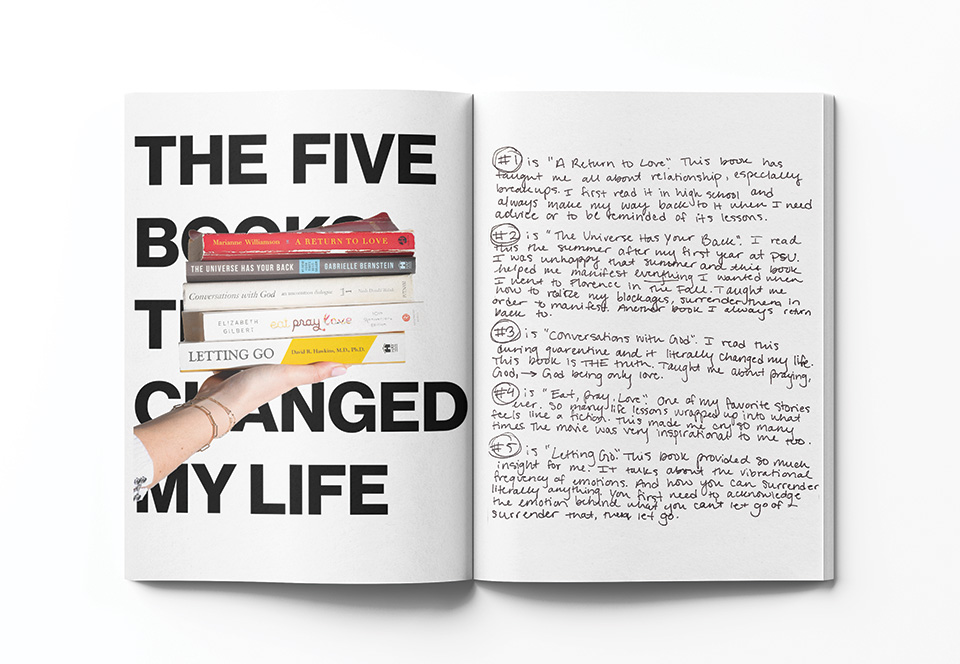 THE FIVE
BOOKS
CHANGED
MY LIFE
Marianne Williamson A RETURN TO LOVE
THE UNIVERSE HAS YOUR BACK GABRIELLE BERNSTEIN
Conversations with God an uncommon dialogue 1 Neale Donald Walsch
ELIZABETH GILBERT eat pray love
LETTING GO David R. Hawkins, M.D., Ph.D.
#1 is "A Return to Love". This book has
taught me all about relationship, especially
breakups. I first read it in high school and
always make my way back to it when I need
advice or to be reminded of its lessons.
#2 is "The Universe Has Your Back". I read
this the summer after my first year at PSU.
I was unhappy that summer and this book
helped me manifest everything I wanted when
I went to Florence in the Fall. Taught me
how to realize my blockages, surrender them in
order to manifest. Another book I always return
back to.
#3 is "Conversations with God". I read this
during quarentine and it literally changed my life.
This book is THE truth. Taught me about praying,
God, → God being only love.
#4 is "Eat, Pray, Love". One of my favorite stories
ever. So many life lessons wrapped up into what
feels like a fiction. This made me cry so many
times. The movie was very inspirational to me too.
#5 is "Letting Go". This book provided so much
insight for me. IT talks about the vibrational
frequency of emotions. And how you can surrender
literally anything. You first need to acknowledge
the emotion behind what you can't let go of &
surrender that, then let go.